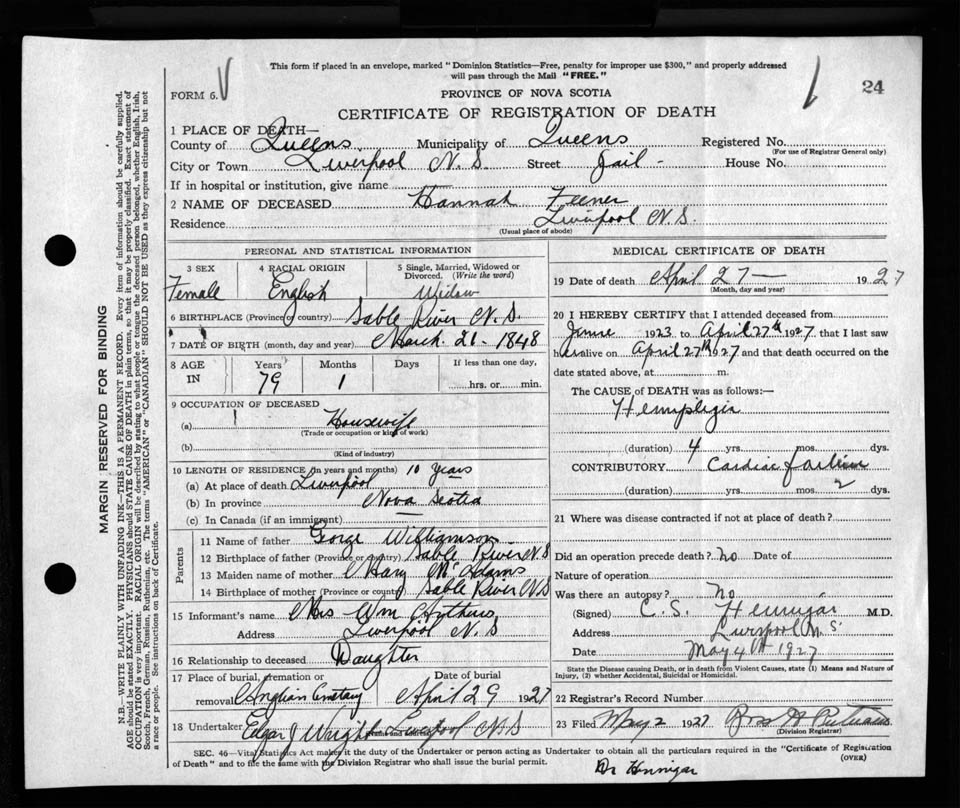 This form if placed in an envelope, marked "Dominion Statistics—Free, penalty for improper use $300," and properly addressed
will pass through the Mail "FREE."
24
FORM 6.
PROVINCE OF NOVA SCOTIA
CERTIFICATE OF REGISTRATION OF DEATH
1 PLACE OF DEATH—
County of Queens Municipality of Queens Registered No.
(For use of Registrar General only)
City or Town Liverpool N.S. Street Jail - House No.
If in hospital or institution, give name
2 NAME OF DECEASED Hannah Feener
Residence Liverpool N.S.
(Usual place of abode)
MARGIN RESERVED FOR BINDING
N.B.—WRITE PLAINLY WITH UNFADING INK—THIS IS A PERMANENT RECORD. Every item of information should be carefully supplied.
AGE should be stated EXACTLY. PHYSICIANS should STATE CAUSE OF DEATH in plain terms, so that it may be properly classified. Exact statement of
OCCUPATION is very important. RACIAL ORIGIN will be described by stating to what people or tongue the deceased person belonged, whether English, Irish,
Scotch, French, German, Russian, Ruthenian, etc. The terms "AMERICAN" or "CANADIAN" SHOULD NOT BE USED as they express citizenship but not
a race or people. See instructions on back of Certificate.
PERSONAL AND STATISTICAL INFORMATION
3 SEX
Female
4 RACIAL ORIGIN
English
5 Single, Married, Widowed or
Divorced. (Write the word)
Widow
6 BIRTHPLACE (Province or country) Sable River N.S.
7 DATE OF BIRTH (month, day and year) March 26 - 1848
8 AGE
IN
Years
79
Months
1
Days
If less than one day,
hrs. or min.
9 OCCUPATION OF DECEASED
(a) Housewife
(Trade or occupation or kind of work)
(b)
(Kind of industry)
10 LENGTH OF RESIDENCE (in years and months) 10 years
(a) At place of death Liverpool
(b) In province Nova Scotia
(c) In Canada (if an immigrant)
Parents
11 Name of father George Williamson
12 Birthplace of father (Province or country) Sable River N.S
13 Maiden name of mother Mary McAdams
14 Birthplace of mother (Province or country) Sable River N.S
15 Informant's name Mrs Wm
Address Liverpool N.S
16 Relationship to deceased Daughter
17 Place of burial, cremation or
removal
Date of burial
April 29 1927
18 Undertaker Edgar J Wright Liverpool N.S
MEDICAL CERTIFICATE OF DEATH
19 Date of death April 27 — 1927
(Month, day and year)
20 I HEREBY CERTIFY that I attended deceased from
June 1923 to April 27th 1927, that I last saw
her alive on April 27th 1927 and that death occurred on the
date stated above, at m.
The CAUSE of DEATH was as follows:—
(duration) 4 yrs. mos. dys.
CONTRIBUTORY Cardiac failure
(duration) yrs. mos. 2 dys.
21 Where was disease contracted if not at place of death?
Did an operation precede death? no Date of
Nature of operation
Was there an autopsy? No
(Signed) C. S. Hennigar M.D.
Address Liverpool N.S.
Date May 4th 1927
State the Disease causing Death, or in death from Violent Causes, state (1) Means and Nature of
Injury, (2) whether Accidental, Suicidal or Homicidal.
22 Registrar's Record Number
23 Filed May 2 1927
(Division Registrar)
SEC. 46—Vital Statistics Act makes it the duty of the Undertaker or person acting as Undertaker to obtain all the particulars required in the "Certificate of Registration
of Death" and to file the same with the Division Registrar who shall issue the burial permit.
(OVER)
Dr Hennigar